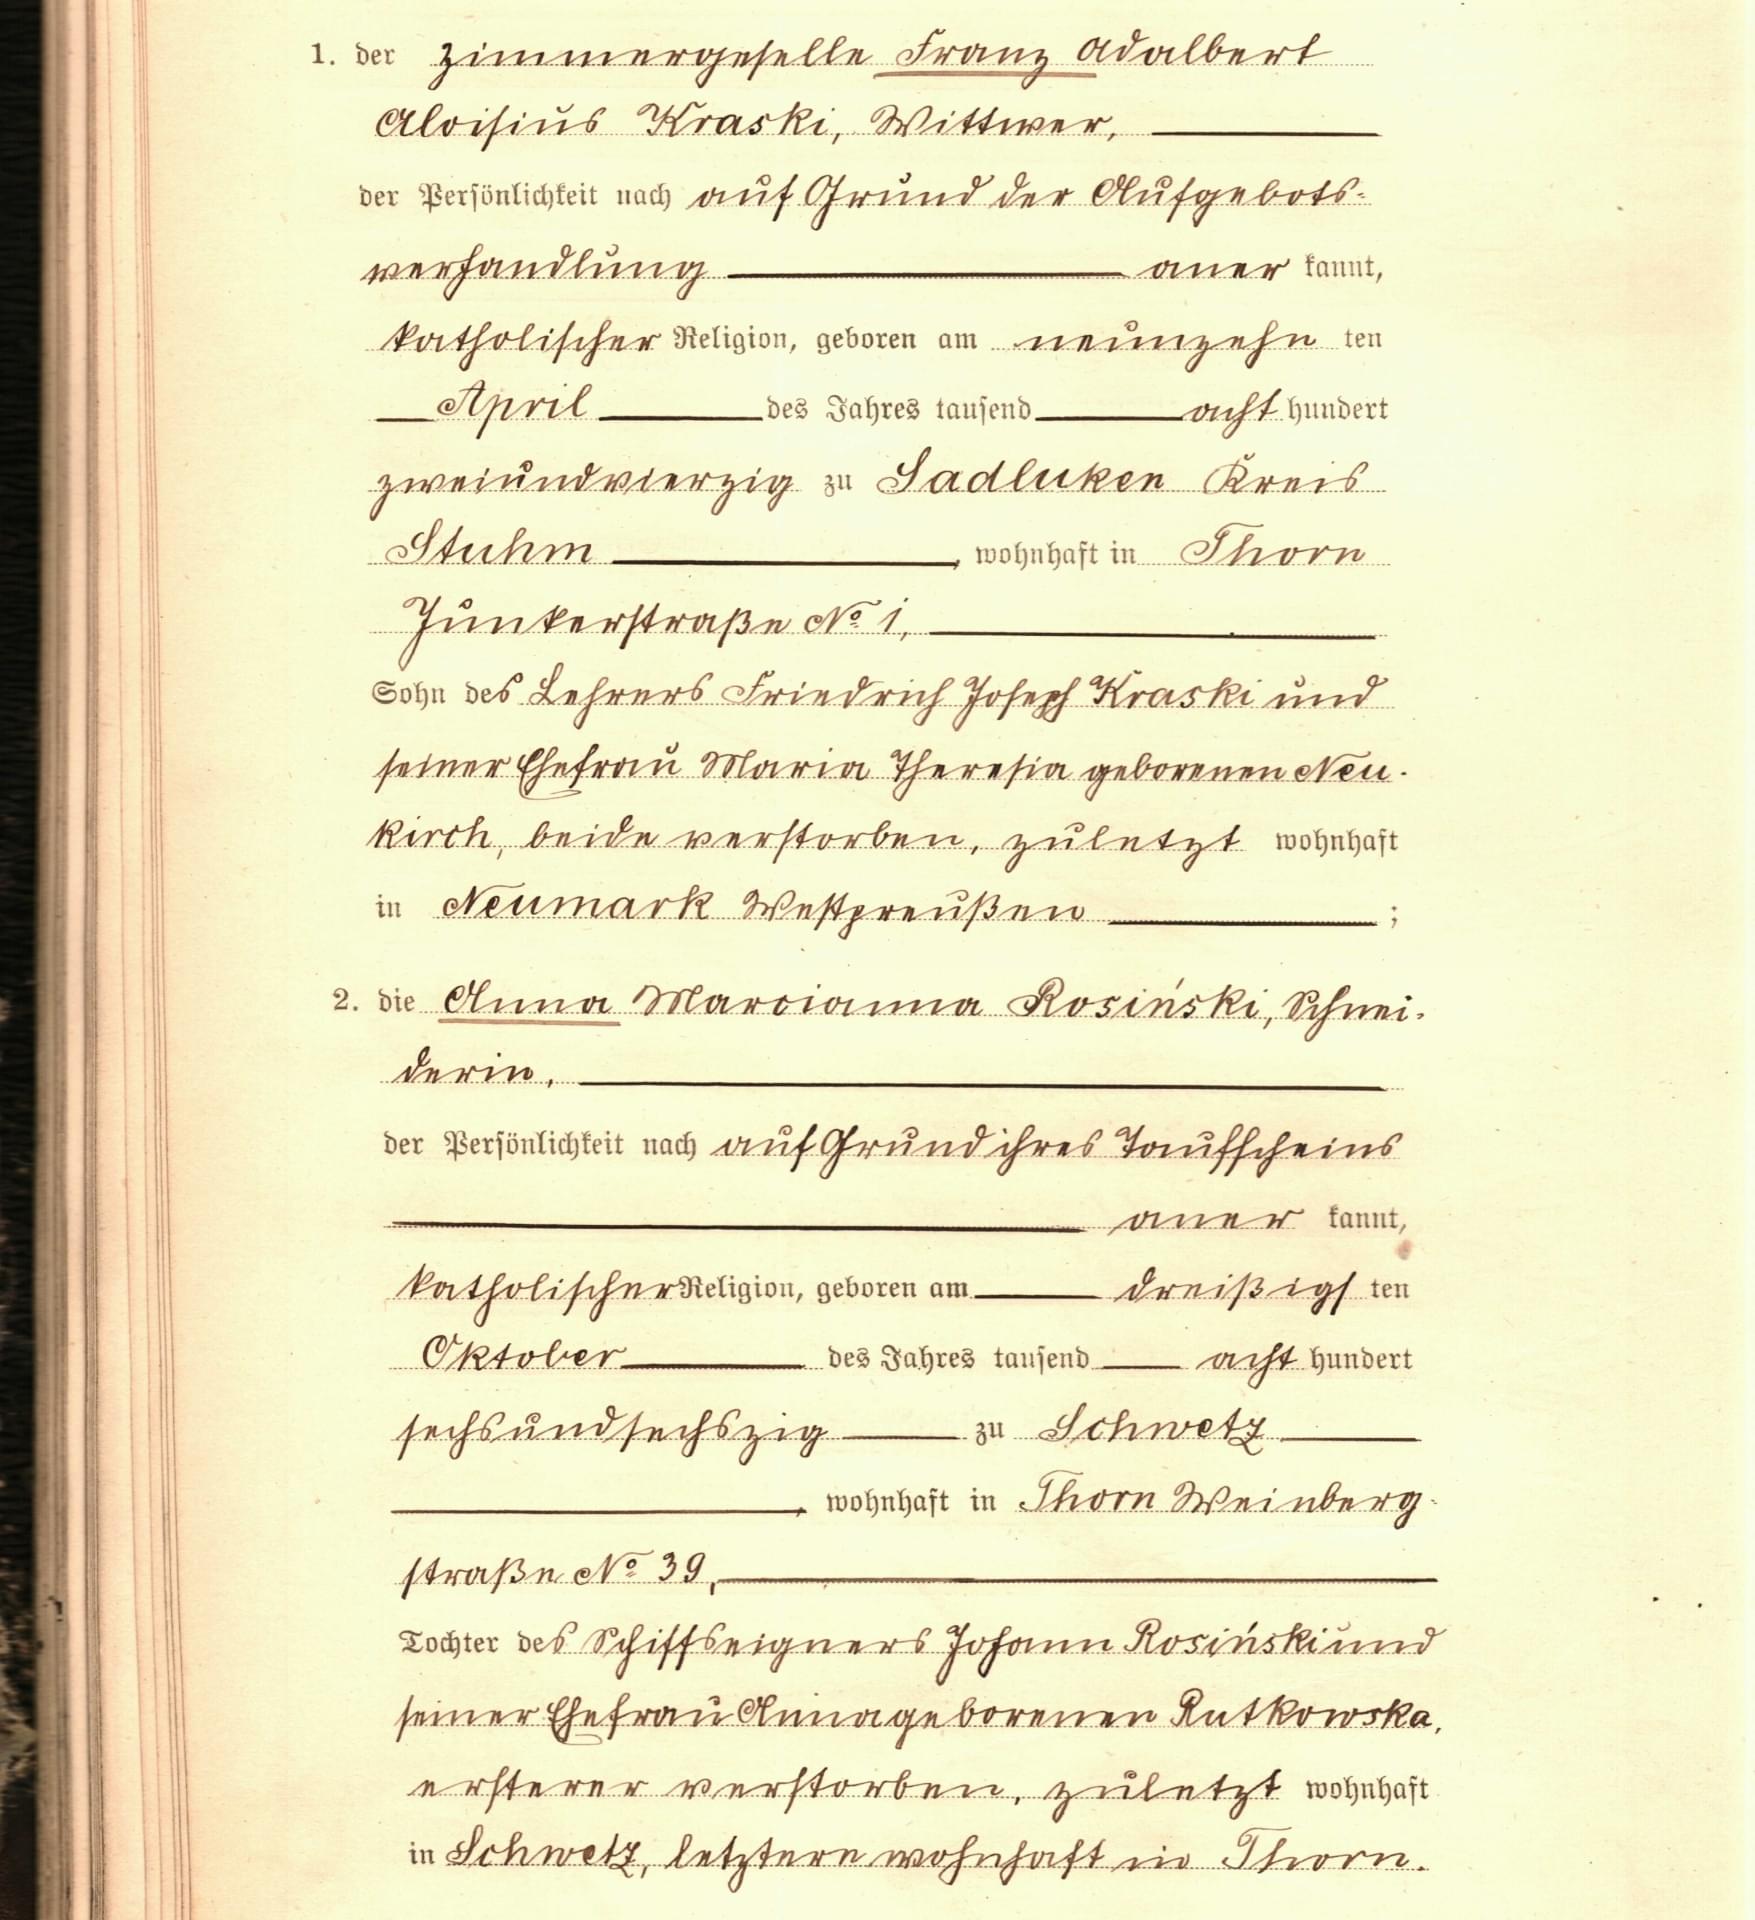 1. der Zimmergeselle Franz Adalbert
Aloisius Kraski, Wittwer,
der Persönlichkeit nach auf Grund der Aufgebots-
verhandlung aner kannt,
katholischer Religion, geboren am neunzehn ten
April des Jahres tausend acht hundert
zweiundvierzig zu Sadluken Kreis
Stuhm, wohnhaft in Thorn
Junkerstraße No 1,
Sohn des Lehrers Friedrich Joseph Kraski und
seiner Ehefrau Maria Theresia geborenen Neu-
kirch, beide verstorben, zuletzt wohnhaft
in Neumark Westpreußen ;
2. die Anna Marcianna Rosiński, Schnei-
derin,
der Persönlichkeit nach auf Grund ihres Taufscheins
aner kannt,
katholischer Religion, geboren am dreißigs ten
Oktober des Jahres tausend acht hundert
sechsundsechszig zu Schwetz
, wohnhaft in Thorn Weinberg-
straße No 39,
Tochter des Schiffseigners Johann Rosiński und
seiner Ehefrau Anna geborenen Rutkowska,
ersterer verstorben, zuletzt wohnhaft
in Schwetz, letztere wohnhaft in Thorn.